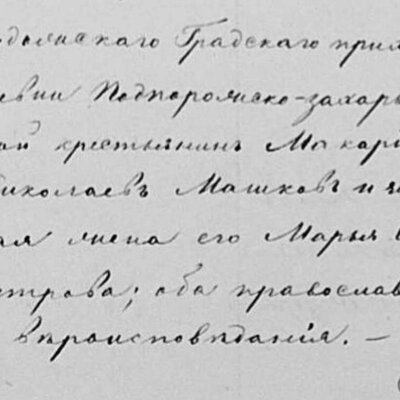 одоискаго Градскаго при
евни Подпорожско-захарь
ой крестьянинъ Макарі
иколаевъ Машковъ и за
ая жена его Марья
трова; оба православ
вѣроисповѣданія. —